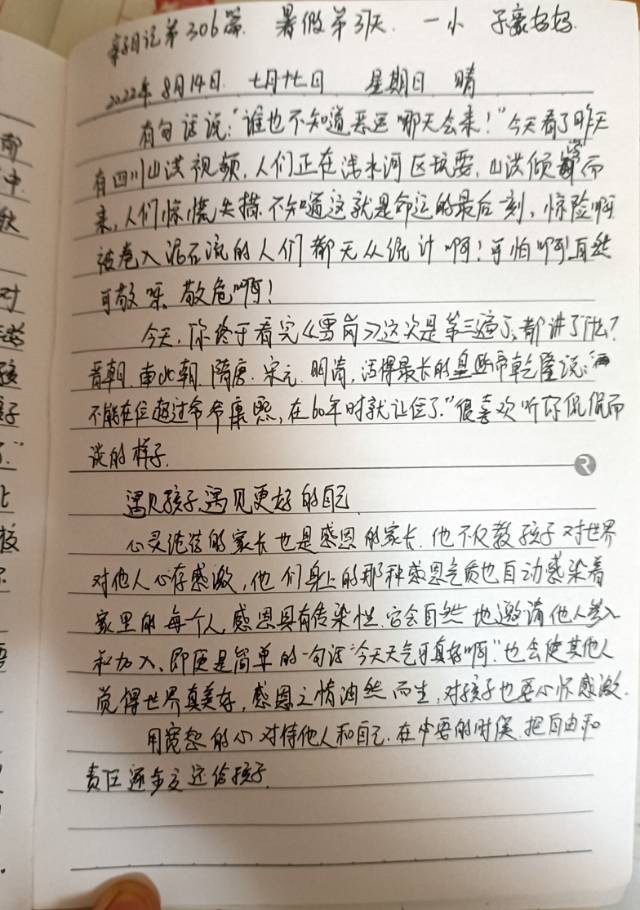 亲子日记第306篇 暑假第37天 一小 子豪妈妈
2022年8月14日 七月十七日 星期日 晴
有句话说:"谁也不知道恶运哪天会来!"今天看了昨天
有四川山洪视频,人们正在浅水河区玩耍,山洪倾泻而
来,人们惊慌失措,不知道这就是命运的最后一刻,惊险啊
被卷入泥石流的人们都无从统计啊!可怕啊!自然
可敬 敬危啊!
今天,你终于看完《 》这次是第三遍了,都讲了什么?
晋朝、南北朝、隋唐、宋元、明清,活得最长的皇帝乾隆说:"
不能在位超过爷爷康熙,在60年时就让位了"很喜欢听你侃侃而
谈的样子.
遇见孩子,遇见更好的自己
心灵纯洁的家长也是感恩的家长,他不仅教孩子对世界
对他人心存感激,他们身上的那种感恩气质也自动感染着
家里的每个人,感恩具有传染性,它会自然地邀请他人参入
和加入,即便是简单的一句话"今天天气可真好啊"也会使其他人
觉得世界真美好,感恩之情油然而生,对孩子也要心怀感激.
用宽恕的心对待他人和自己,在 要的时候,把自由和
责任逐步交还给孩子.
2